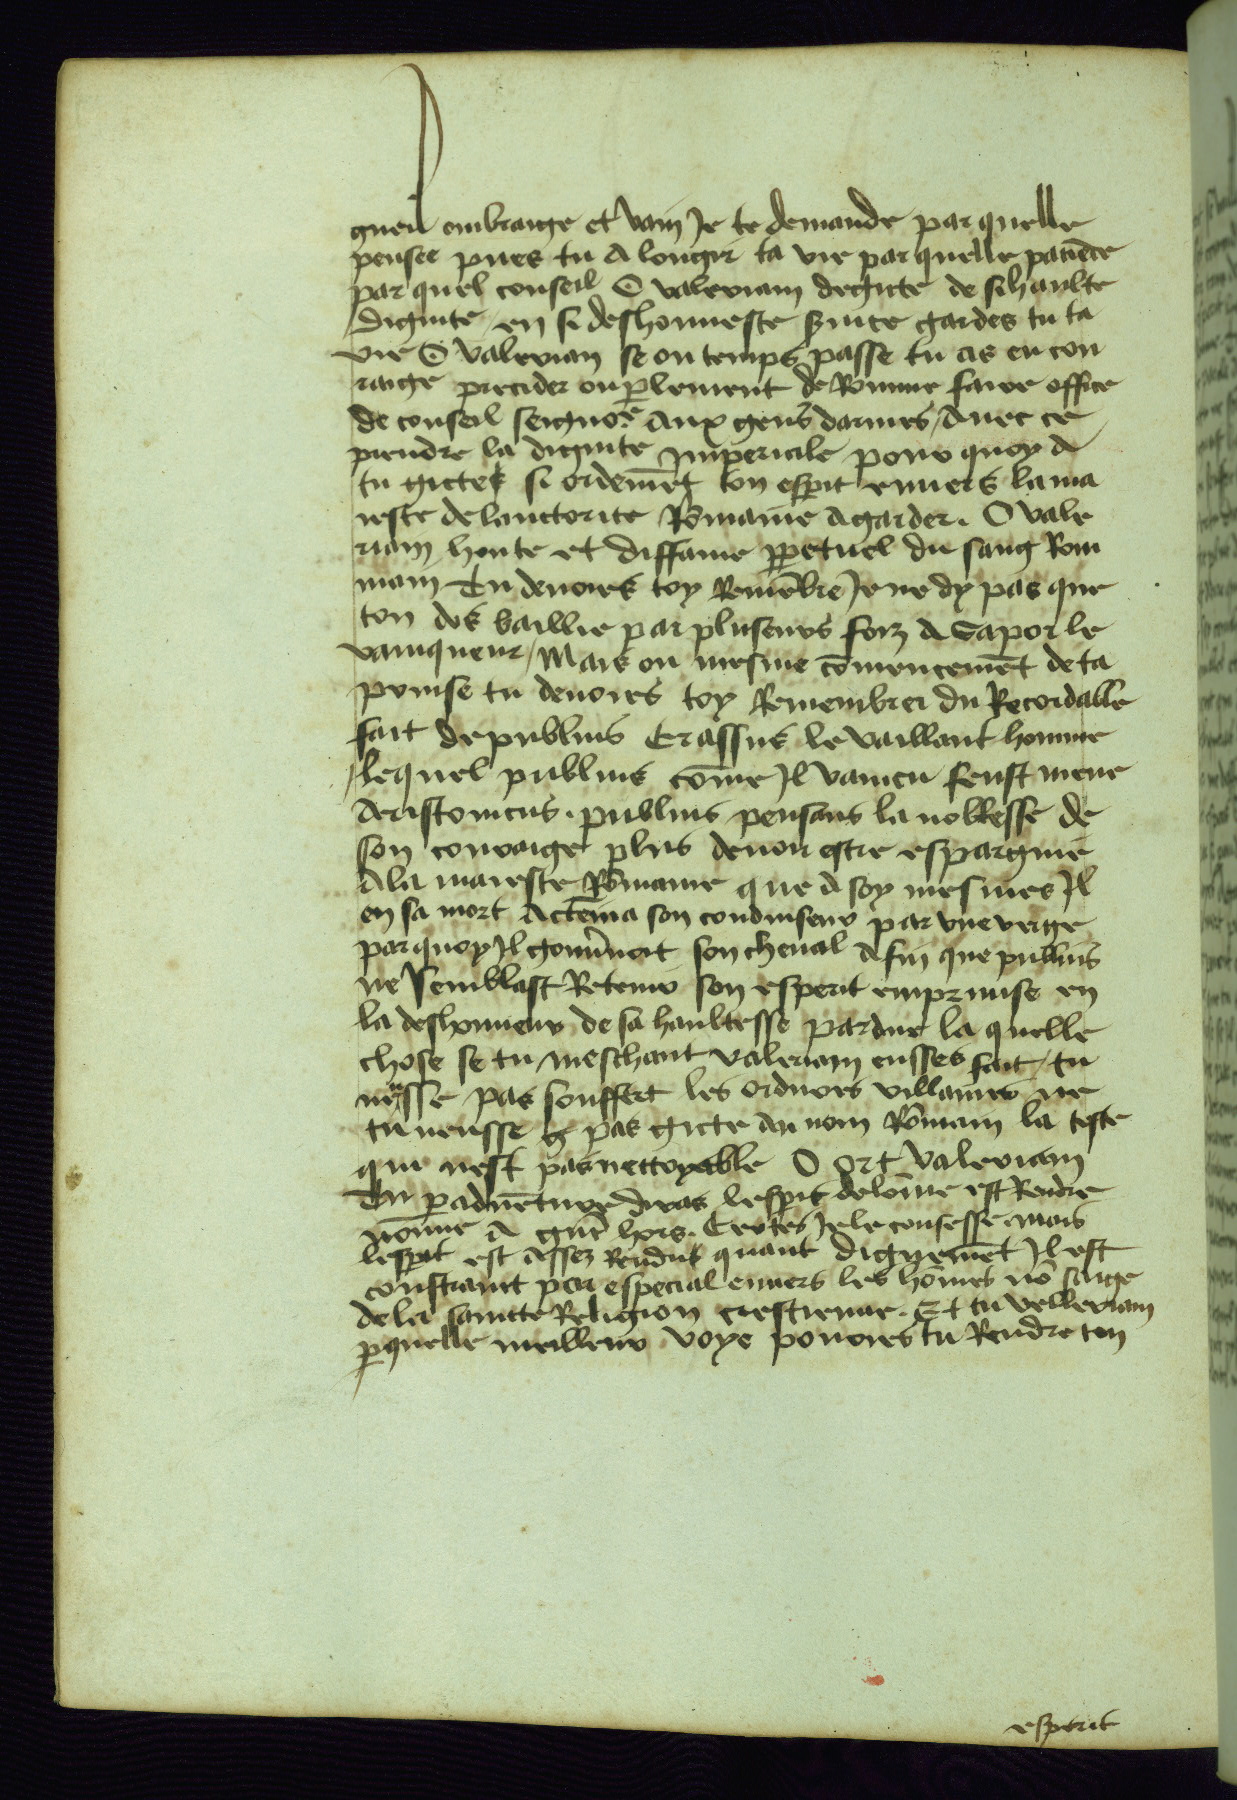 gueil ombraige et vain Je te demande par quelle
pensee pues tu A longir ta vie par quelle paciēce
par quel conseil O valeriam degicte de si haulte
dignite / en si deshonneste guice gardes tu ta
vie O Valerian se ou temps passe tu as eu cou
raige precider ou plement de Romme faire office
de conseil seignoʳ aux gens darmes / Avec ce
prendre la dignite imperiale pour quoy A
tu gictes si ordemēt ton esprit enuers la ma
ieste de lauctorite Romaine A garder . O vale
riam honte et diffame ppetuel du sang Rom
mam Tu deuoies toy Remēbre Je ne dy pas que
ton dos baillie par pluseurs foiz A Sapor le
vainqueur / Mais ou mesme cōmencemēt de ta
prinse tu deuoies toy Remembrer du Recordable
fait de publius Crassus le vaillant homme
/ lequel publius cōme Jl vaincu feust mene
Aristonicus . publius pensans la noblesse de
son couraige plus deuoir estre espargnie
A la maieste Romaine que A soy mesmes Jl
en sa mort Acteina son conduiseur par vne verge
par quoy Jl gouūnoit son cheual A fin que publius
ne semblast Retenir son esperit emprinse en
la deshonneur de sa haultesse pardue la quelle
chose se tu / meschant valeriam eusses fait / tu
neusse / pas souffert les ordures villaines ne
tu neusse pas gicte au nom Romam la teste
qui nest pas nettoyable O ort valeriam
Tu p aduēture diras lesprit delōme est Rendre
nōme A gict hors . Certes Je le confesse mais
lesprit est Assez Rendut quant dignemēt Jl est
constraint par especial enuers les hōmes nō saige
de la saincte Religion crestienne . Et tu valleriam
p quelle meilleur voye pouoies tu Rendre ton
esperit